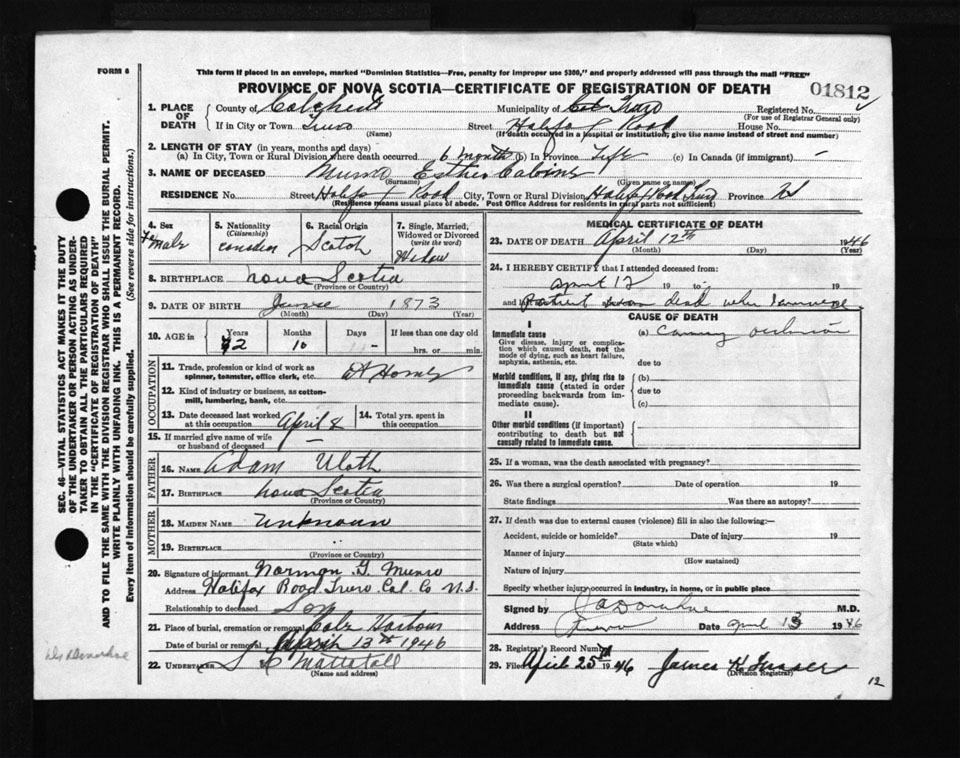 FORM 6
This form if placed in an envelope, marked "Dominion Statistics—Free, penalty for improper use $300," and properly addressed will pass through the mail "FREE"
PROVINCE OF NOVA SCOTIA—CERTIFICATE OF REGISTRATION OF DEATH
01812
1. PLACE OF DEATH County of Colchester Municipality of Col Truro Registered No.
(For use of Registrar General only)
If in City or Town Truro Street Halifax Road House No.
(Name) (If death occurred in a hospital or institution, give the name instead of street and number)
2. LENGTH OF STAY (in years, months and days)
(a) In City, Town or Rural Division where death occurred 6 months (b) In Province Life (c) In Canada (if immigrant) —
3. NAME OF DECEASED Munro Esther
(Surname) (Given name or names)
RESIDENCE No. Street, Halifax Road City, Town or Rural Division Halifax Road Truro Province NS
(Residence means usual place of abode. Post Office Address for residents in rural parts not sufficient)
4. Sex Female
5. Nationality (Citizenship) Canadian
6. Racial Origin Scotch
7. Single, Married, Widowed or Divorced (write the word) Widow
8. BIRTHPLACE Nova Scotia
(Province or Country)
9. DATE OF BIRTH June 1873
(Month) (Day) (Year)
10. AGE in Years 72 Months 10 Days - If less than one day old hrs. or min.
OCCUPATION
11. Trade, profession or kind of work as spinner, teamster, office clerk, etc. At Home
12. Kind of industry or business, as cotton-mill, lumbering, bank, etc.
13. Date deceased last worked at this occupation April 8
14. Total yrs. spent in this occupation
15. If married give name of wife or husband of deceased —
FATHER
16. NAME Adam Uloth
17. BIRTHPLACE Nova Scotia
(Province or Country)
MOTHER
18. MAIDEN NAME Unknown
19. BIRTHPLACE
(Province or Country)
20. Signature of informant Norman G. Munro
Address Halifax Road Truro Col. Co N.S.
Relationship to deceased Son
21. Place of burial, cremation or removal Cole Harbour
Date of burial or removal April 13th 1946
22. UNDERTAKER Mattatall
(Name and address)
MEDICAL CERTIFICATE OF DEATH
23. DATE OF DEATH April 12th 1946
(Month) (Day) (Year)
24. I HEREBY CERTIFY that I attended deceased from:
April 12 19 to 19
and patient was dead when I arrived
CAUSE OF DEATH
I
Immediate cause
Give disease, injury or complication which caused death, not the mode of dying, such as heart failure, asphyxia, asthenia, etc.
(a) Coronary occlusion
due to
Morbid conditions, if any, giving rise to immediate cause (stated in order proceeding backwards from immediate cause).
(b)
due to
(c)
II
Other morbid conditions (if important) contributing to death but not causally related to immediate cause.
25. If a woman, was the death associated with pregnancy?
26. Was there a surgical operation? Date of operation 19
State findings Was there an autopsy?
27. If death was due to external causes (violence) fill in also the following:—
Accident, suicide or homicide? Date of injury 19
(State which)
Manner of injury
(How sustained)
Nature of injury
Specify whether injury occurred in industry, in home, or in public place
Signed by Donahue M.D.
Address Truro Date April 13 1946
28. Registrar's Record Number
29. Filed April 25th 1946 James H Fraser
(Division Registrar)
12
SEC. 46—VITAL STATISTICS ACT MAKES IT THE DUTY
OF THE UNDERTAKER OR PERSON ACTING AS UNDERTAKER TO OBTAIN ALL THE PARTICULARS REQUIRED
IN THE "CERTIFICATE OF REGISTRATION OF DEATH"
AND TO FILE THE SAME WITH THE DIVISION REGISTRAR WHO SHALL ISSUE THE BURIAL PERMIT.
WRITE PLAINLY WITH UNFADING INK. THIS IS A PERMANENT RECORD.
Every item of information should be carefully supplied. (See reverse side for instructions.)